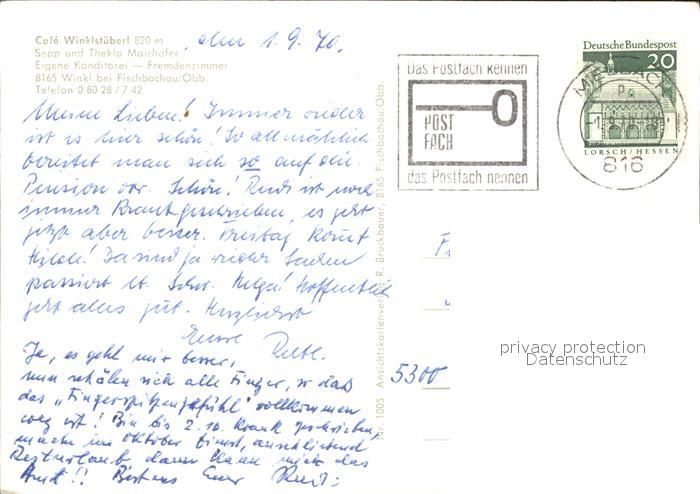 Café Winklstüberl 820 m
Sepp und Thekla Mairhofer
Eigene Konditorei — Fremdenzimmer
8165 Winkl bei Fischbachau/Obb.
Telefon 0 80 28 / 7 42
, den 1.9.70.
Meine Lieben! Immer wieder
ist es hier schön! So allmählich
bereitet man sich so auf die
Pension vor. Schön! Rudi ist noch
immer krank geschrieben, es geht
jetzt aber besser. Freitag kommt
Da sind ja wieder Sachen
passiert lt. Helga! Hoffentlich
geht alles gut. Herzlichst
Eure
Ja, es geht mir besser,
nun schälen sich alle Finger, so daß
das "Fingerspitzengefühl" vollkommen
weg ist! Bin bis 2.10. krank geschrieben,
mache im Oktober Dienst, anschließend
Resturlaub dann kann mich das
Amt!! Bestens Euer Rudi
Nr. 1005 Ansichtskartenverlag R. Bruckbauer, 8165 Fischbachau/Obb.
Das Postfach kennen
POST
FACH
das Postfach nennen
Deutsche Bundespost
20
LORSCH/HESSEN
MIESBACH
816
5300
privacy protection
Datenschutz